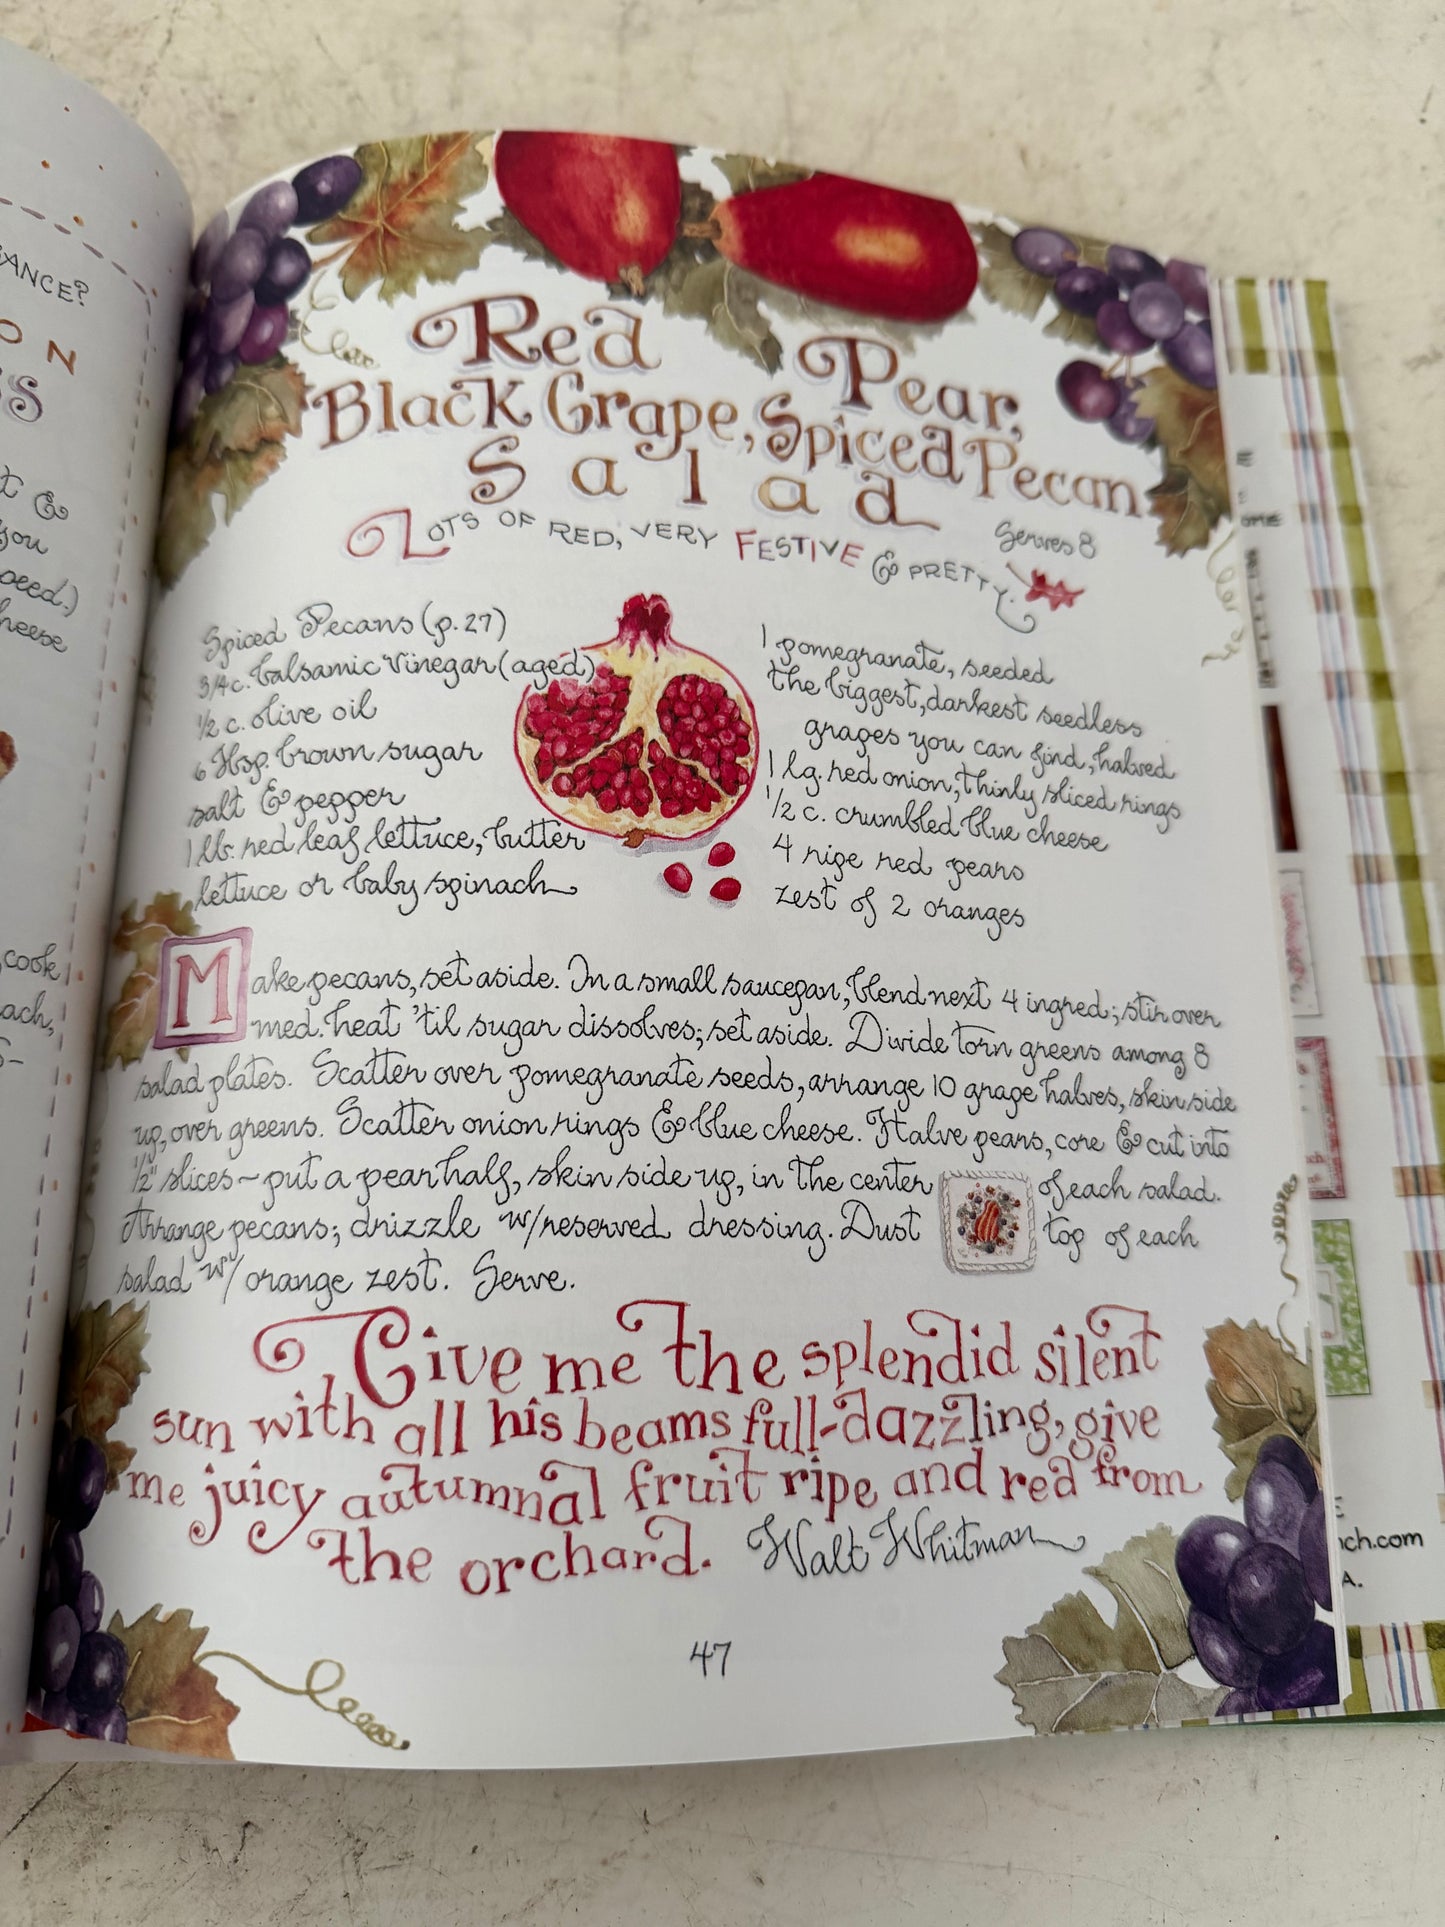 ANCE?
ON
SS
t &
you
peed.)
heese
cook
ach,
Red Pear,
Black Grape, Spiced Pecan
Salad
LOTS OF RED, VERY FESTIVE & PRETTY.
Serves 8
Spiced Pecans (p. 27)
3/4 c. balsamic vinegar (aged)
1/2 c. olive oil
6 Tbsp. brown sugar
salt & pepper
1 lb. red leaf lettuce, butter
lettuce or baby spinach
1 pomegranate, seeded
the biggest, darkest seedless
grapes you can find, halved
1 lg. red onion, thinly sliced rings
1/2 c. crumbled blue cheese
4 ripe red pears
zest of 2 oranges
Make pecans, set aside. In a small saucepan, blend next 4 ingred.; stir over
med. heat 'til sugar dissolves; set aside. Divide torn greens among 8
salad plates. Scatter over pomegranate seeds, arrange 10 grape halves, skin side
up, over greens. Scatter onion rings & blue cheese. Halve pears, core & cut into
1/2" slices ~ put a pear half, skin side up, in the center of each salad.
Arrange pecans; drizzle w/reserved dressing. Dust top of each
salad w/ orange zest. Serve.
Give me the splendid silent
sun with all his beams full-dazzling, give
me juicy autumnal fruit ripe and red from
the orchard. Walt Whitman
47
ch.com
A.